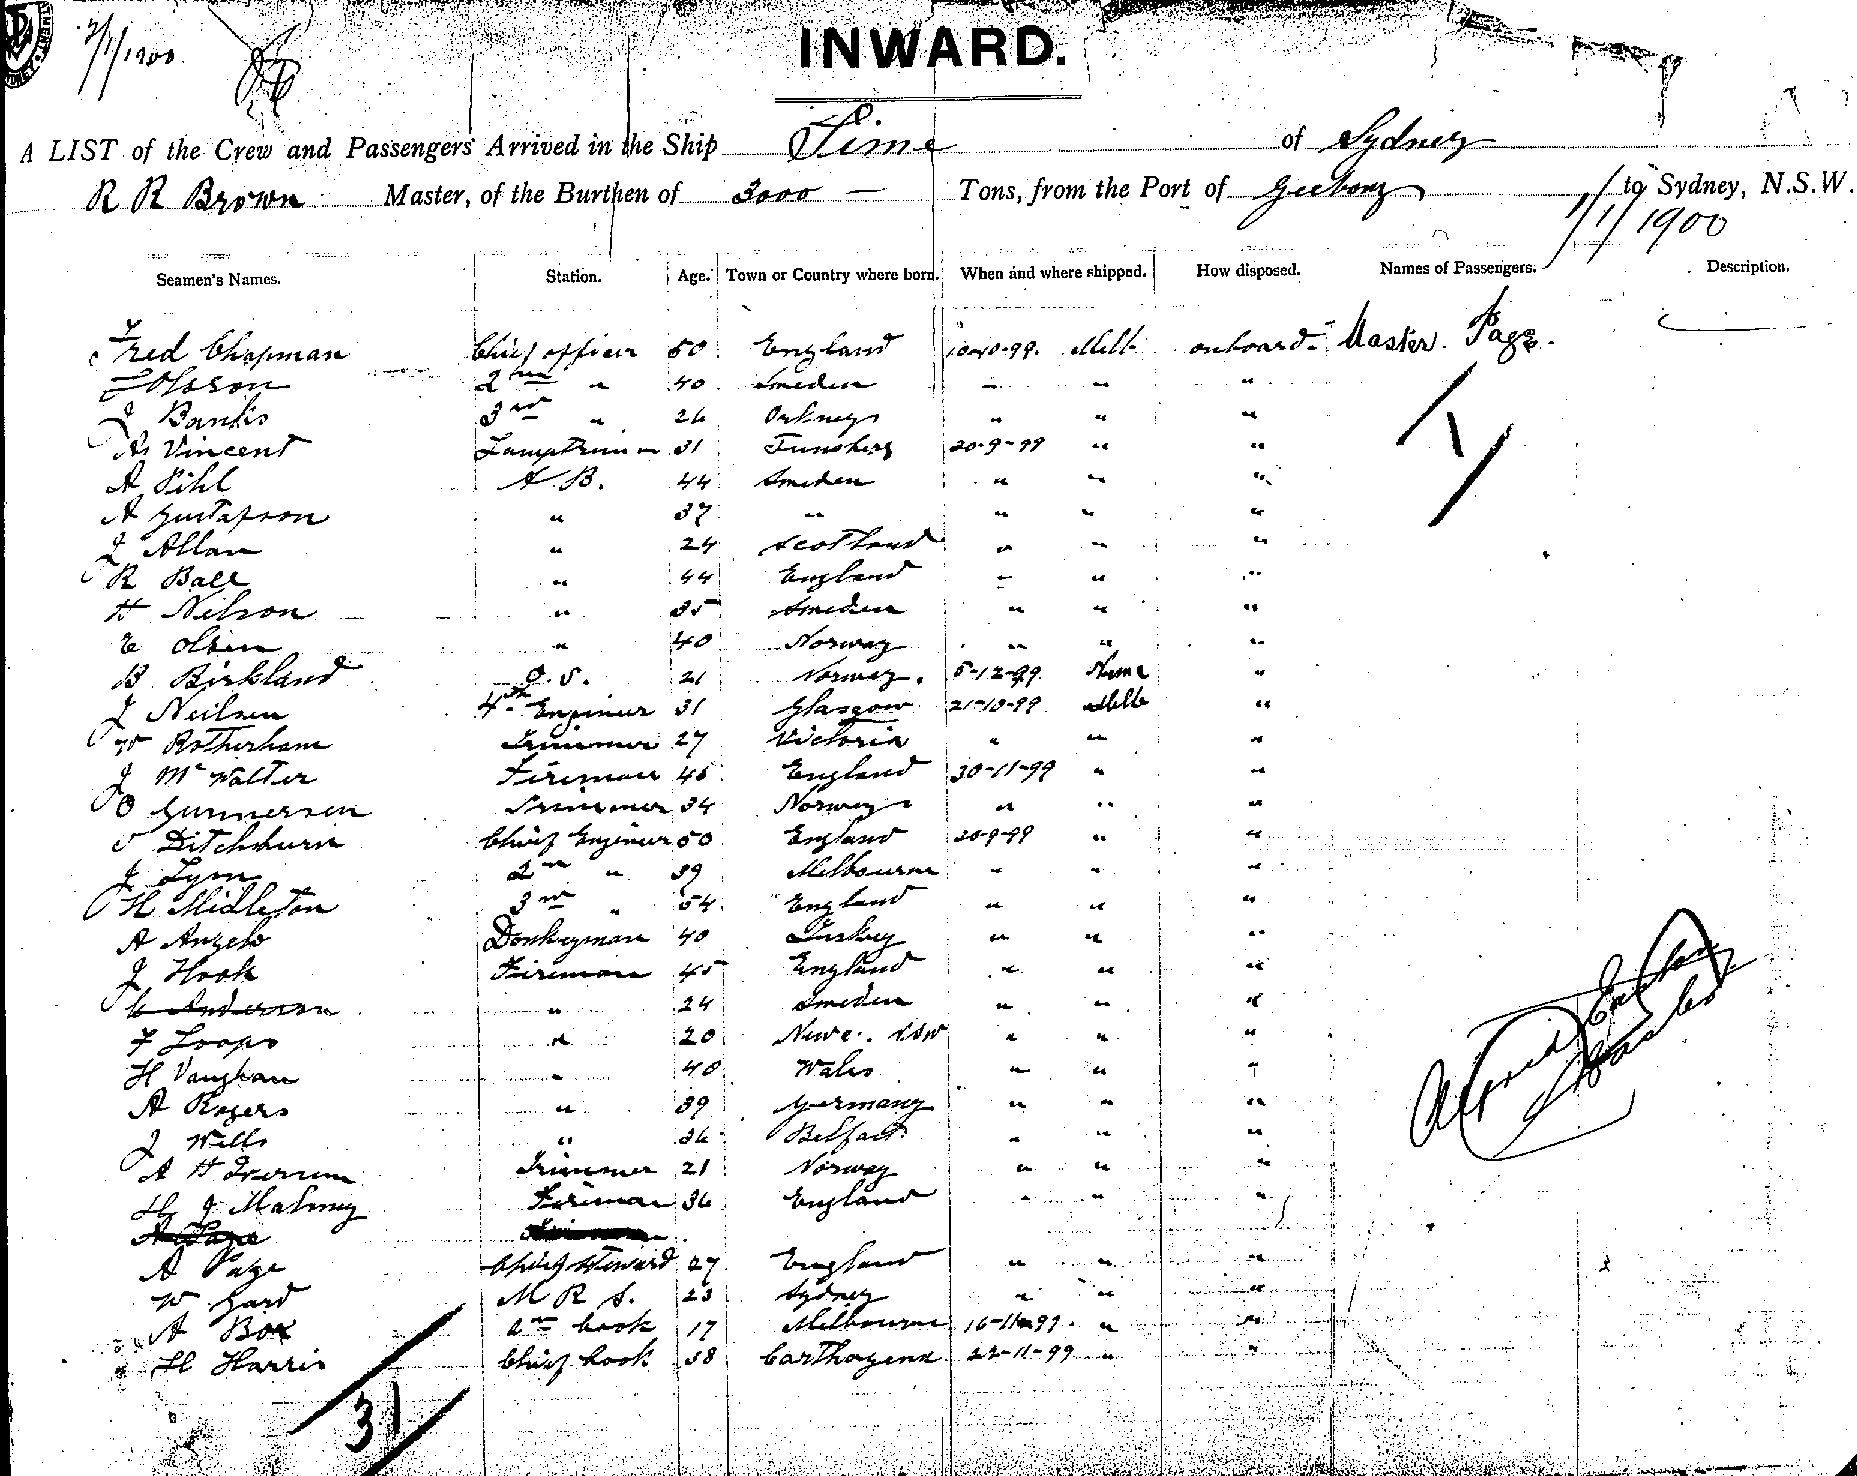 2/1/1900.
INWARD.
A LIST of the Crew and Passengers Arrived in the Ship Time of Sydney
R R Brown Master, of the Burthen of 3000 — Tons, from the Port of Geelong to Sydney, N.S.W.
1/1/1900
Seamen's Names. Station. Age. Town or Country where born. When and where shipped. How disposed. Names of Passengers. Description.
Fred Chapman Chief officer 50 England 10-10-99. Melb onboard Master Page.
Olsson 2nd " 40 Sweden " " "
J Banks 3rd " 26 Orkneys " " "
Vincent Lamptrimmer 31 20-9-99 " "
A Pihl A.B. 44 Sweden " " "
A Gustafson " 37 " " " "
J Allan " 24 Scotland " " "
R Ball " 44 England " " "
H Nelson " 35 Sweden " " "
E Olsen " 40 Norway " " "
B Birkland O.S. 21 Norway. 5-12-99 "
J Neilsen 4th Engineer 31 Glasgow 21-10-99 Melb "
W Rotherham Trimmer 27 Victoria " " "
J McWalter Fireman 45 England 30-11-99 " "
O Gunnersen Trimmer 34 Norway " " "
Ditchburn Chief Engineer 50 England 20-9-99 " "
J Lyon 2nd " 39 Melbourne " " "
H Midleton 3rd " 54 England " " "
A Angelo Donkeyman 40 Turkey " " "
J Hook Fireman 45 England " " "
C Anderson " 24 Sweden " " "
F Loops " 20 Newc. NSW " " "
H Vaughan " 40 Wales " " "
A Rogers " 39 Germany " " "
J Wells " 36 Belfast " " "
A H Iversen Trimmer 21 Norway " " "
H J Mahoney Fireman 36 England " " "
A Page
A Page Chief Steward 27 England " " "
W Gard M R S. 23 Sydney " " "
A Box 2nd Cook 17 Melbourne 16-11-99. " "
H Harris Chief Cook 38 Carthagena 22-11-99 " "
31